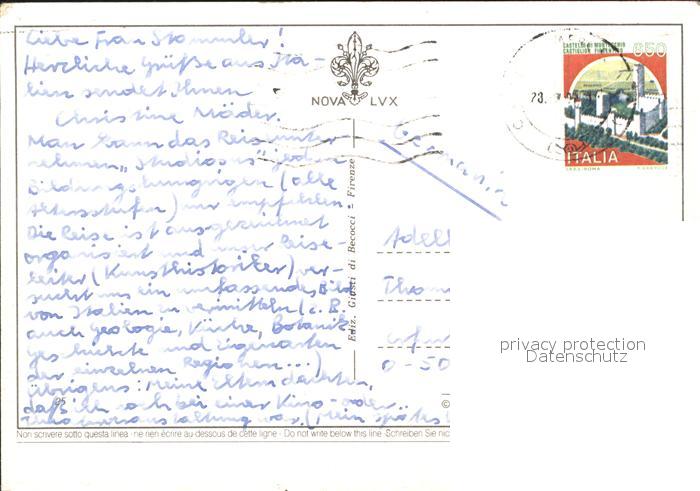 Liebe Frau Stammler!
Herzliche Grüße aus Ita-
lien sendet Ihnen
Christine Mäder.
Man kann das Reiseunter-
nehmen „Studiosus" jedem
Bildungshungrigen (alle
Altersstufen) nur empfehlen.
Die Reise ist ausgezeichnet
organisiert und unser Reise-
leiter (Kunsthistoriker) ver-
sucht uns ein umfassendes Bild
von Italien zu vermitteln (z. B.
auch Geologie, Küche, Botanik,
Geschichte und Eigenarten
der einzelnen Regionen...)
Übrigens: Meine Eltern dachten,
daß ich noch bei einer Kino- oder
war. (Mein spätes
95
Non scrivere sotto questa linea - ne rien écrire au-dessous de cette ligne - Do not write below this line - Schreiben Sie nic
NOVA LVX
Ediz. Giusti di Becocci - Firenze
Germania
CASTELLO DI MONTECCHIO
CASTIGLION FIORENTINO
650
ITALIA
23.
Adel
Thom
Erfu
D-50
©
privacy protection
Datenschutz